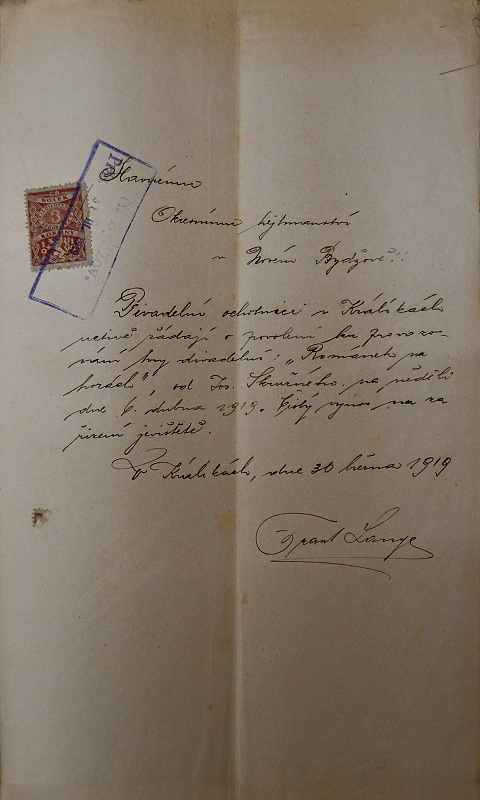 Slavnému
Okresnímu hejtmanství
v Novém Bydžově!!
Divadelní ochotníci v Králíkách
uctivě žádají o povolení ku provozo-
vání hry divadelní: „Romanek na
horách", od Jos. Skružného na neděli
dne 6. dubna 1919. Čistý výnos na za
řízení jeviště.
V Králíkách, dne 30 března 1919
Frant Lange
KOLEK
3
KORUNY